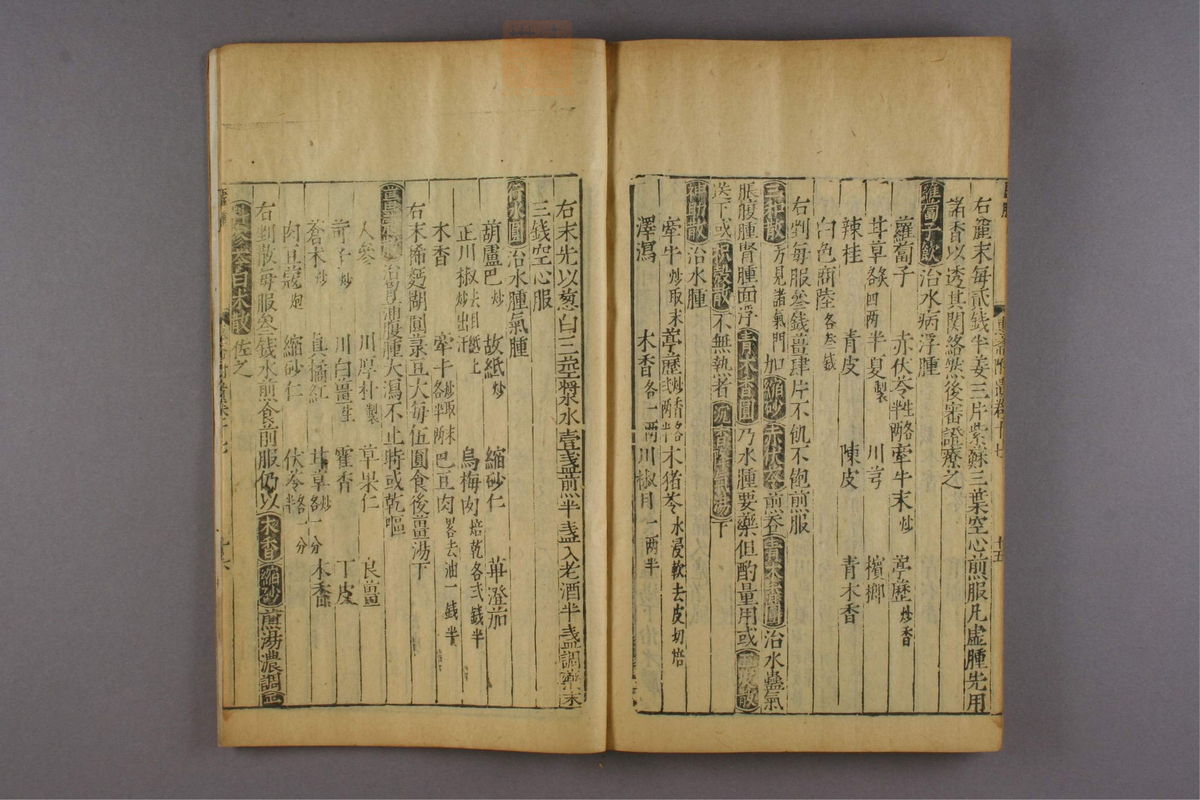 右麄末每貳錢半姜三片紫蘇三葉空心煎服凡虛腫先用
諸香以透其関絡然後審證療之
蘿蔔子飲治水病浮腫
蘿蔔子 赤伏苓 牽牛末炒 葶藶炒香
甘草 各四兩 半夏製 川芎 檳榔
辣桂 青皮 陳皮 青木香
白色商陸各叁錢
右剉每服叁錢薑肆片不飢不飽煎服
三和散方見諸氣門加縮砂赤伏苓煎吞青木香圓治水蠱氣
脹腹腫腎腫面浮青木香圓乃水腫要藥但酌量用或
送下或枳殼散不無執者 下
神助散治水腫
牽牛炒取末 葶藶炒香 木猪苓水浸軟去皮切焙
澤瀉 木香各一兩 川椒目一兩半
右末先以葱白三莖漿水壹盞煎半盞入老酒半盞調藥末
三錢空心服
行水圓治水腫氣腫
葫蘆巴炒 故紙炒 縮砂仁 蓽澄茄
正川椒去目炒出汗 烏梅肉焙乾各弍錢半
木香 牽牛炒取末 巴豆肉畧去油一錢半
右末稀麪糊圓菉豆大每伍圓食後薑湯下
治 腹腫大瀉不止時或乾嘔
人參 川厚朴製 草果仁 良薑
訶子炒 川白薑生 藿香 丁皮
蒼朮炒 真橘紅 甘草炒 木香
肉豆蔻炮 縮砂仁 伏苓
右剉散每服叁錢水煎食前服仍以木香縮砂煎湯濃調
參苓白朮散佐之